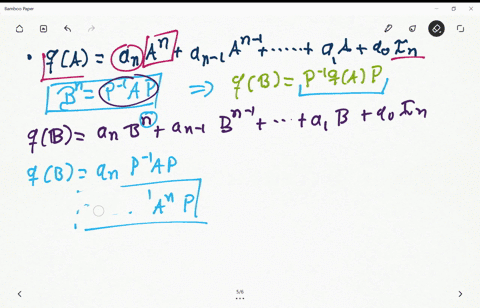 Bamboo Paper
• q(A) = aₙ Aⁿ + aₙ₋₁ Aⁿ⁻¹ + ...... + a₁ A + a₀ Iₙ
Bⁿ = P⁻¹AP ⇒ q(B) = P⁻¹q(A) P
q(B) = aₙ Bⁿ + aₙ₋₁ Bⁿ⁻¹ + ... + a₁ B + a₀ Iₙ
q(B) = aₙ P⁻¹AP
Aⁿ P
5/6